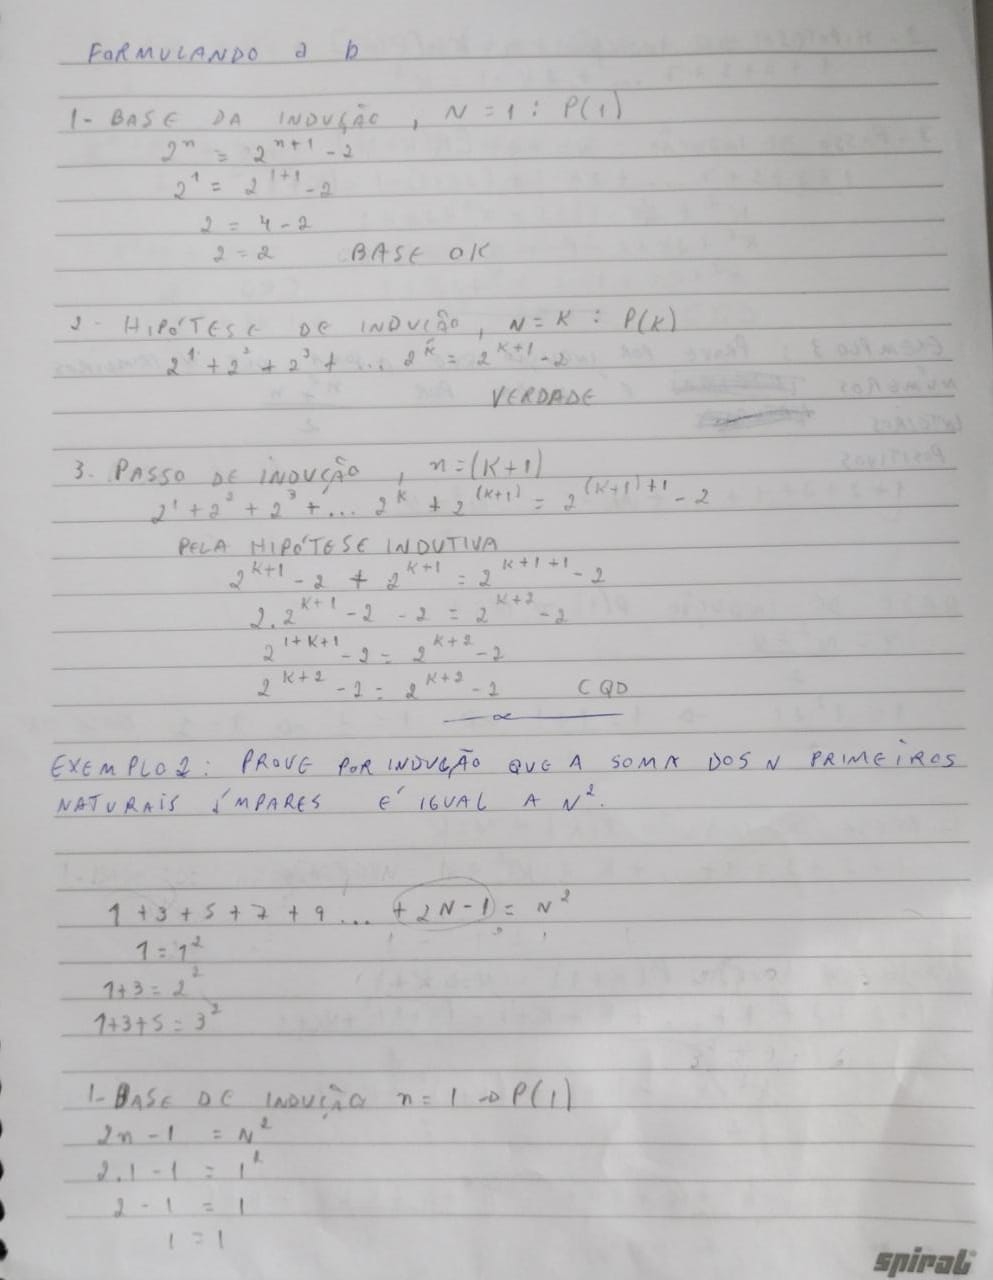 FORMULANDO a b
1- BASE DA INDUÇÃO, N = 1 : P(1)
2^n = 2^{n+1} - 2
2^1 = 2^{1+1} - 2
2 = 4 - 2
2 = 2 BASE OK
2 - HIPÓTESE DE INDUÇÃO, N = K : P(K)
2^1 + 2^2 + 2^3 + ... 2^K = 2^{K+1} - 2
VERDADE
3. PASSO DE INDUÇÃO, n = (K+1)
2^1 + 2^2 + 2^3 + ... 2^K + 2^{(K+1)} = 2^{(K+1)+1} - 2
PELA HIPÓTESE INDUTIVA
2^{K+1} - 2 + 2^{K+1} = 2^{K+1+1} - 2
2.2^{K+1} - 2 - 2 = 2^{K+2} - 2
2^{1+K+1} - 2 = 2^{K+2} - 2
2^{K+2} - 2 = 2^{K+2} - 2 CQD
EXEMPLO 2: PROVE POR INDUÇÃO QUE A SOMA DOS N PRIMEIROS
NATURAIS ÍMPARES É IGUAL A N^2.
1 + 3 + 5 + 7 + 9 ... + 2N - 1 = N^2
1 = 1^2
1+3 = 2^2
1+3+5 = 3^2
1- BASE DE INDUÇÃO n = 1 → P(1)
2n - 1 = N^2
2.1 - 1 = 1^2
2 - 1 = 1
1 = 1
spiral